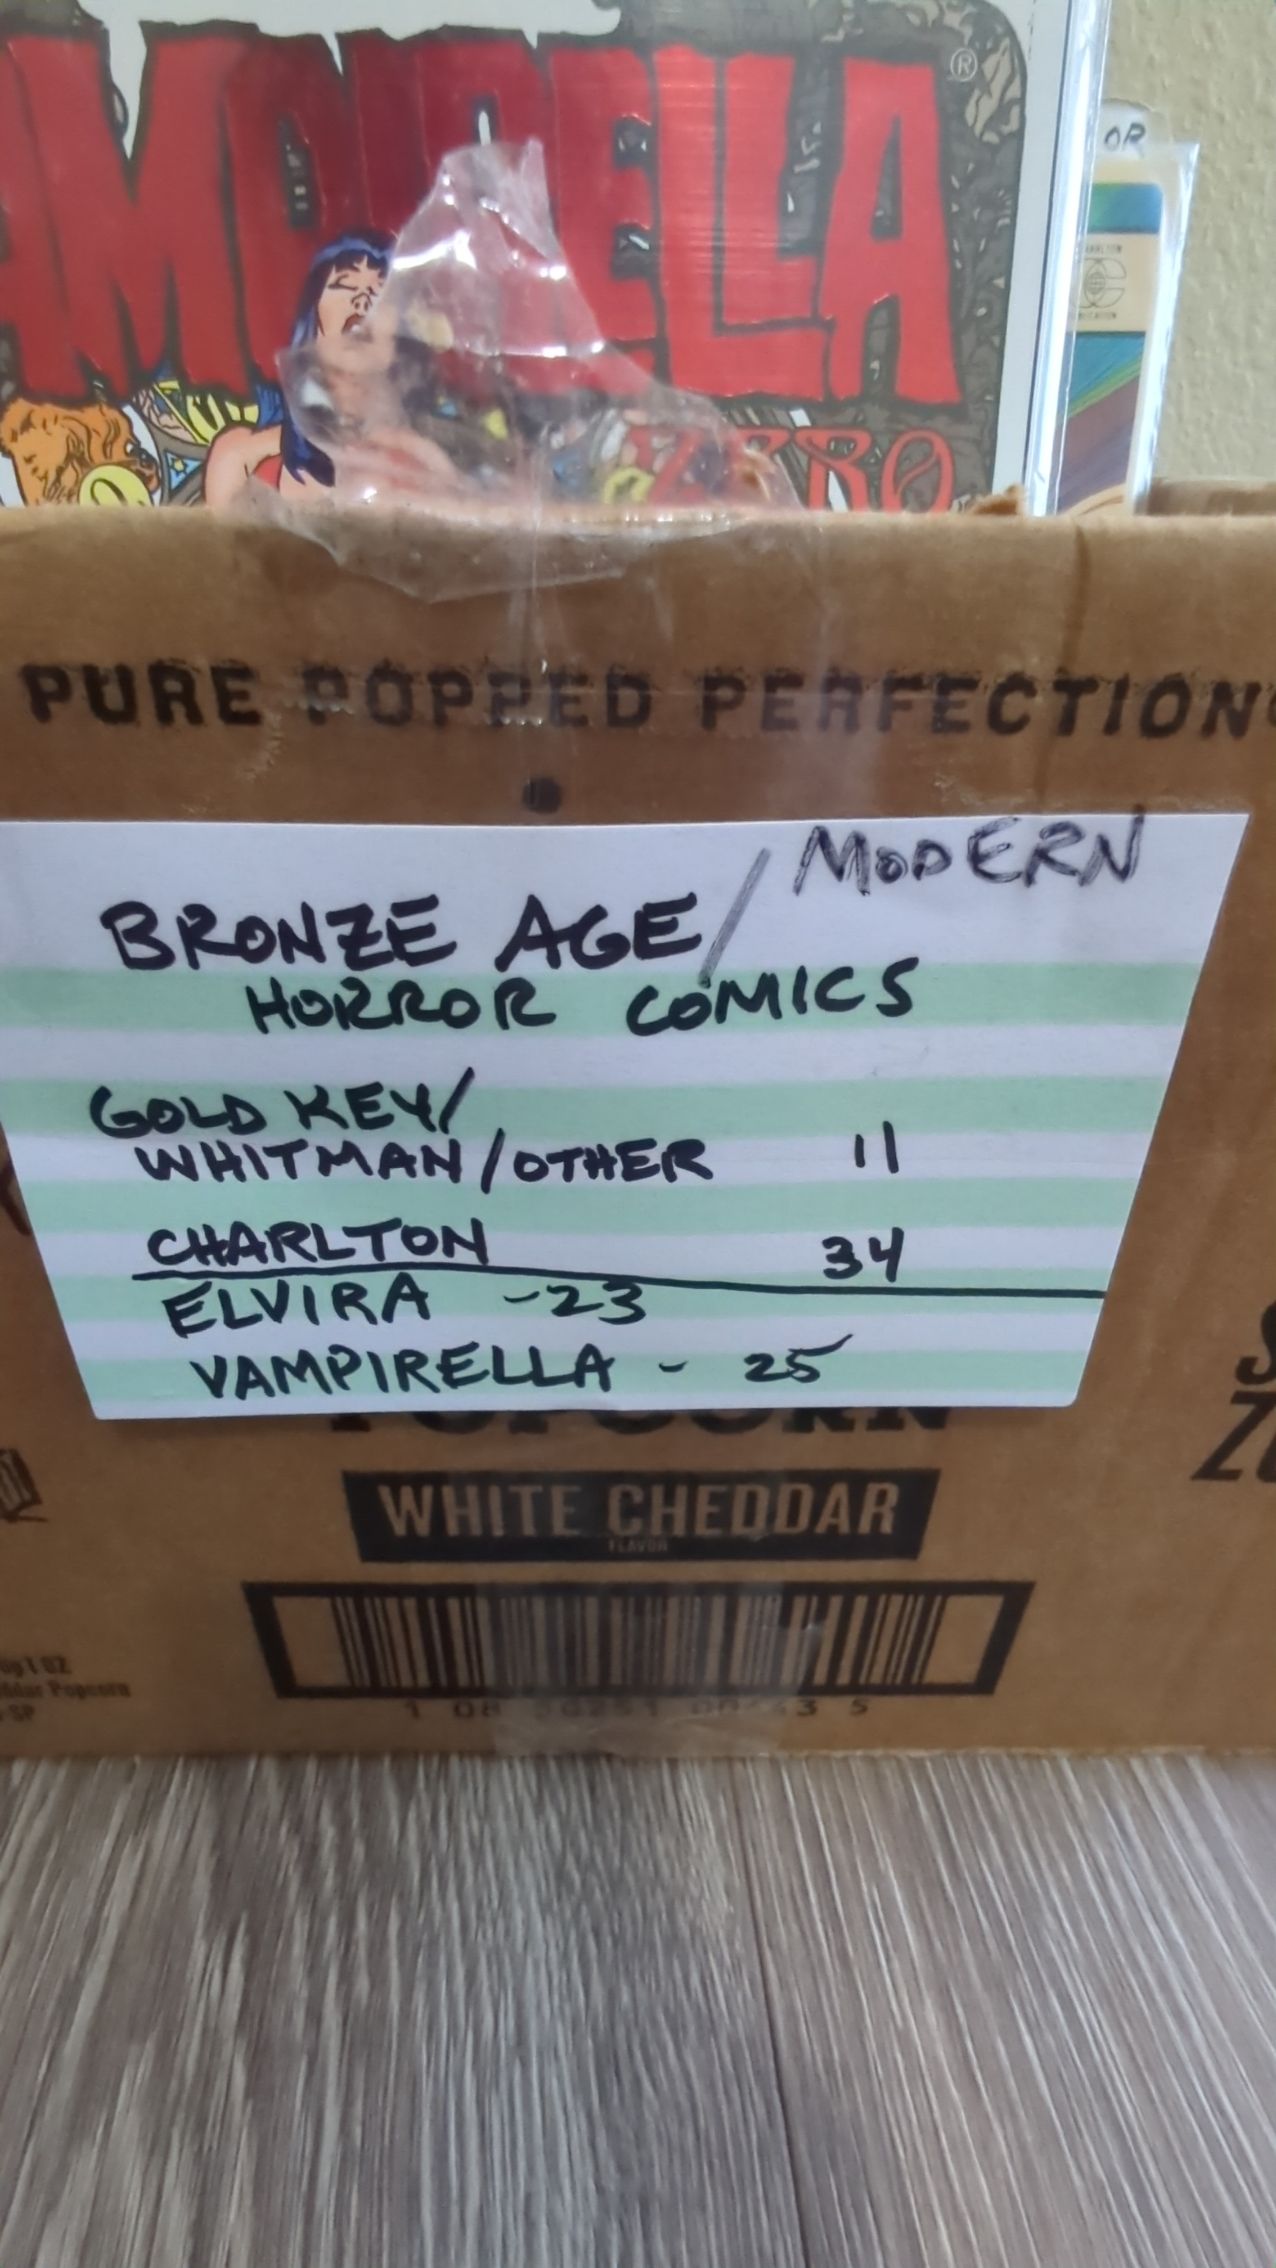 OR
®
ZERO
PURE POPPED PERFECTION
/MODERN
BRONZE AGE/
HORROR COMICS
GOLD KEY/
WHITMAN/OTHER 11
CHARLTON 34
ELVIRA - 23
VAMPIRELLA - 25
POPCORN
WHITE CHEDDAR
FLAVOR